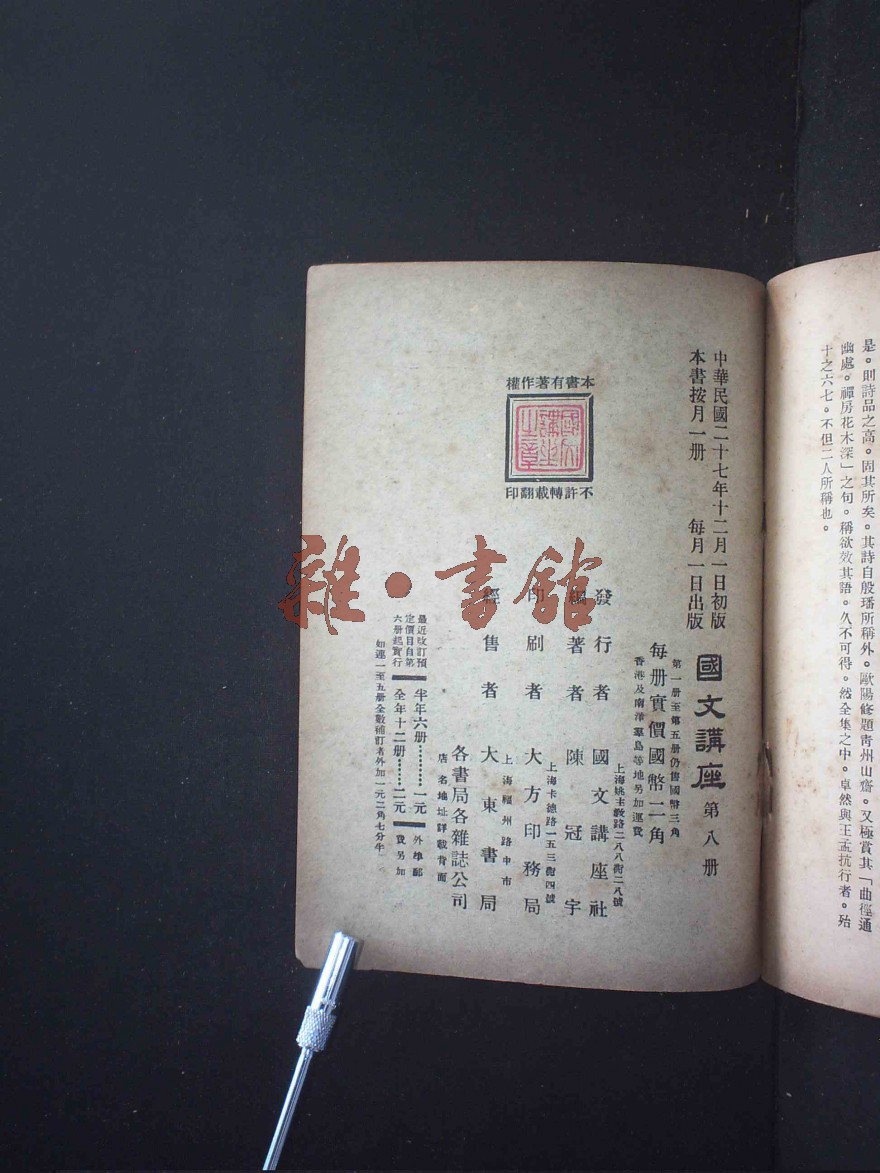 是。則詩品之高。固其所矣。其詩自殷璠所稱外。歐陽修題靑州山齋。又極賞其「曲徑通
幽處。禪房花木深」之句。稱欲效其語。久不可得。然全集之中。卓然與王孟抗行者。殆
十之六七。不但二人所稱也。
中華民國二十七年十二月一日初版
本書按月一册 每月一日出版
國文講座 第八册
第一册至第五册仍售國幣三角
每册實價國幣二角
香港及南洋羣島等地另加運費
本書有著作權
國文講座之章
不許轉載翻印
上海姚主敎路二八八街二八號
發行者 國文講座社
編著者 陳冠宇
上海卡德路一五三街四號
印刷者 大方印務局
上海福州路中市
經售者 大東書局
各書局各雜誌公司
店名地址詳載背面
最近改訂預
定價目自第
六册起實行
半年六册………一元
全年十二册………二元
外埠郵
費另加
如連一至五册全數補訂者外加一元二角七分半
雜·書館